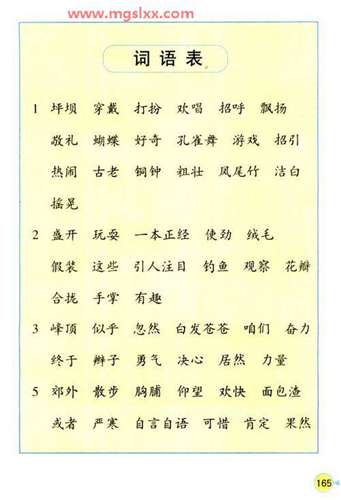 www.mgslxx.com
词语表
1 坪坝 穿戴 打扮 欢唱 招呼 飘扬
敬礼 蝴蝶 好奇 孔雀舞 游戏 招引
热闹 古老 铜钟 粗壮 凤尾竹 洁白
摇晃
2 盛开 玩耍 一本正经 使劲 绒毛
假装 这些 引人注目 钓鱼 观察 花瓣
合拢 手掌 有趣
3 峰顶 似乎 忽然 白发苍苍 咱们 奋力
终于 辫子 勇气 决心 居然 力量
5 郊外 散步 胸脯 仰望 欢快 面包渣
或者 严寒 自言自语 可惜 肯定 果然
165